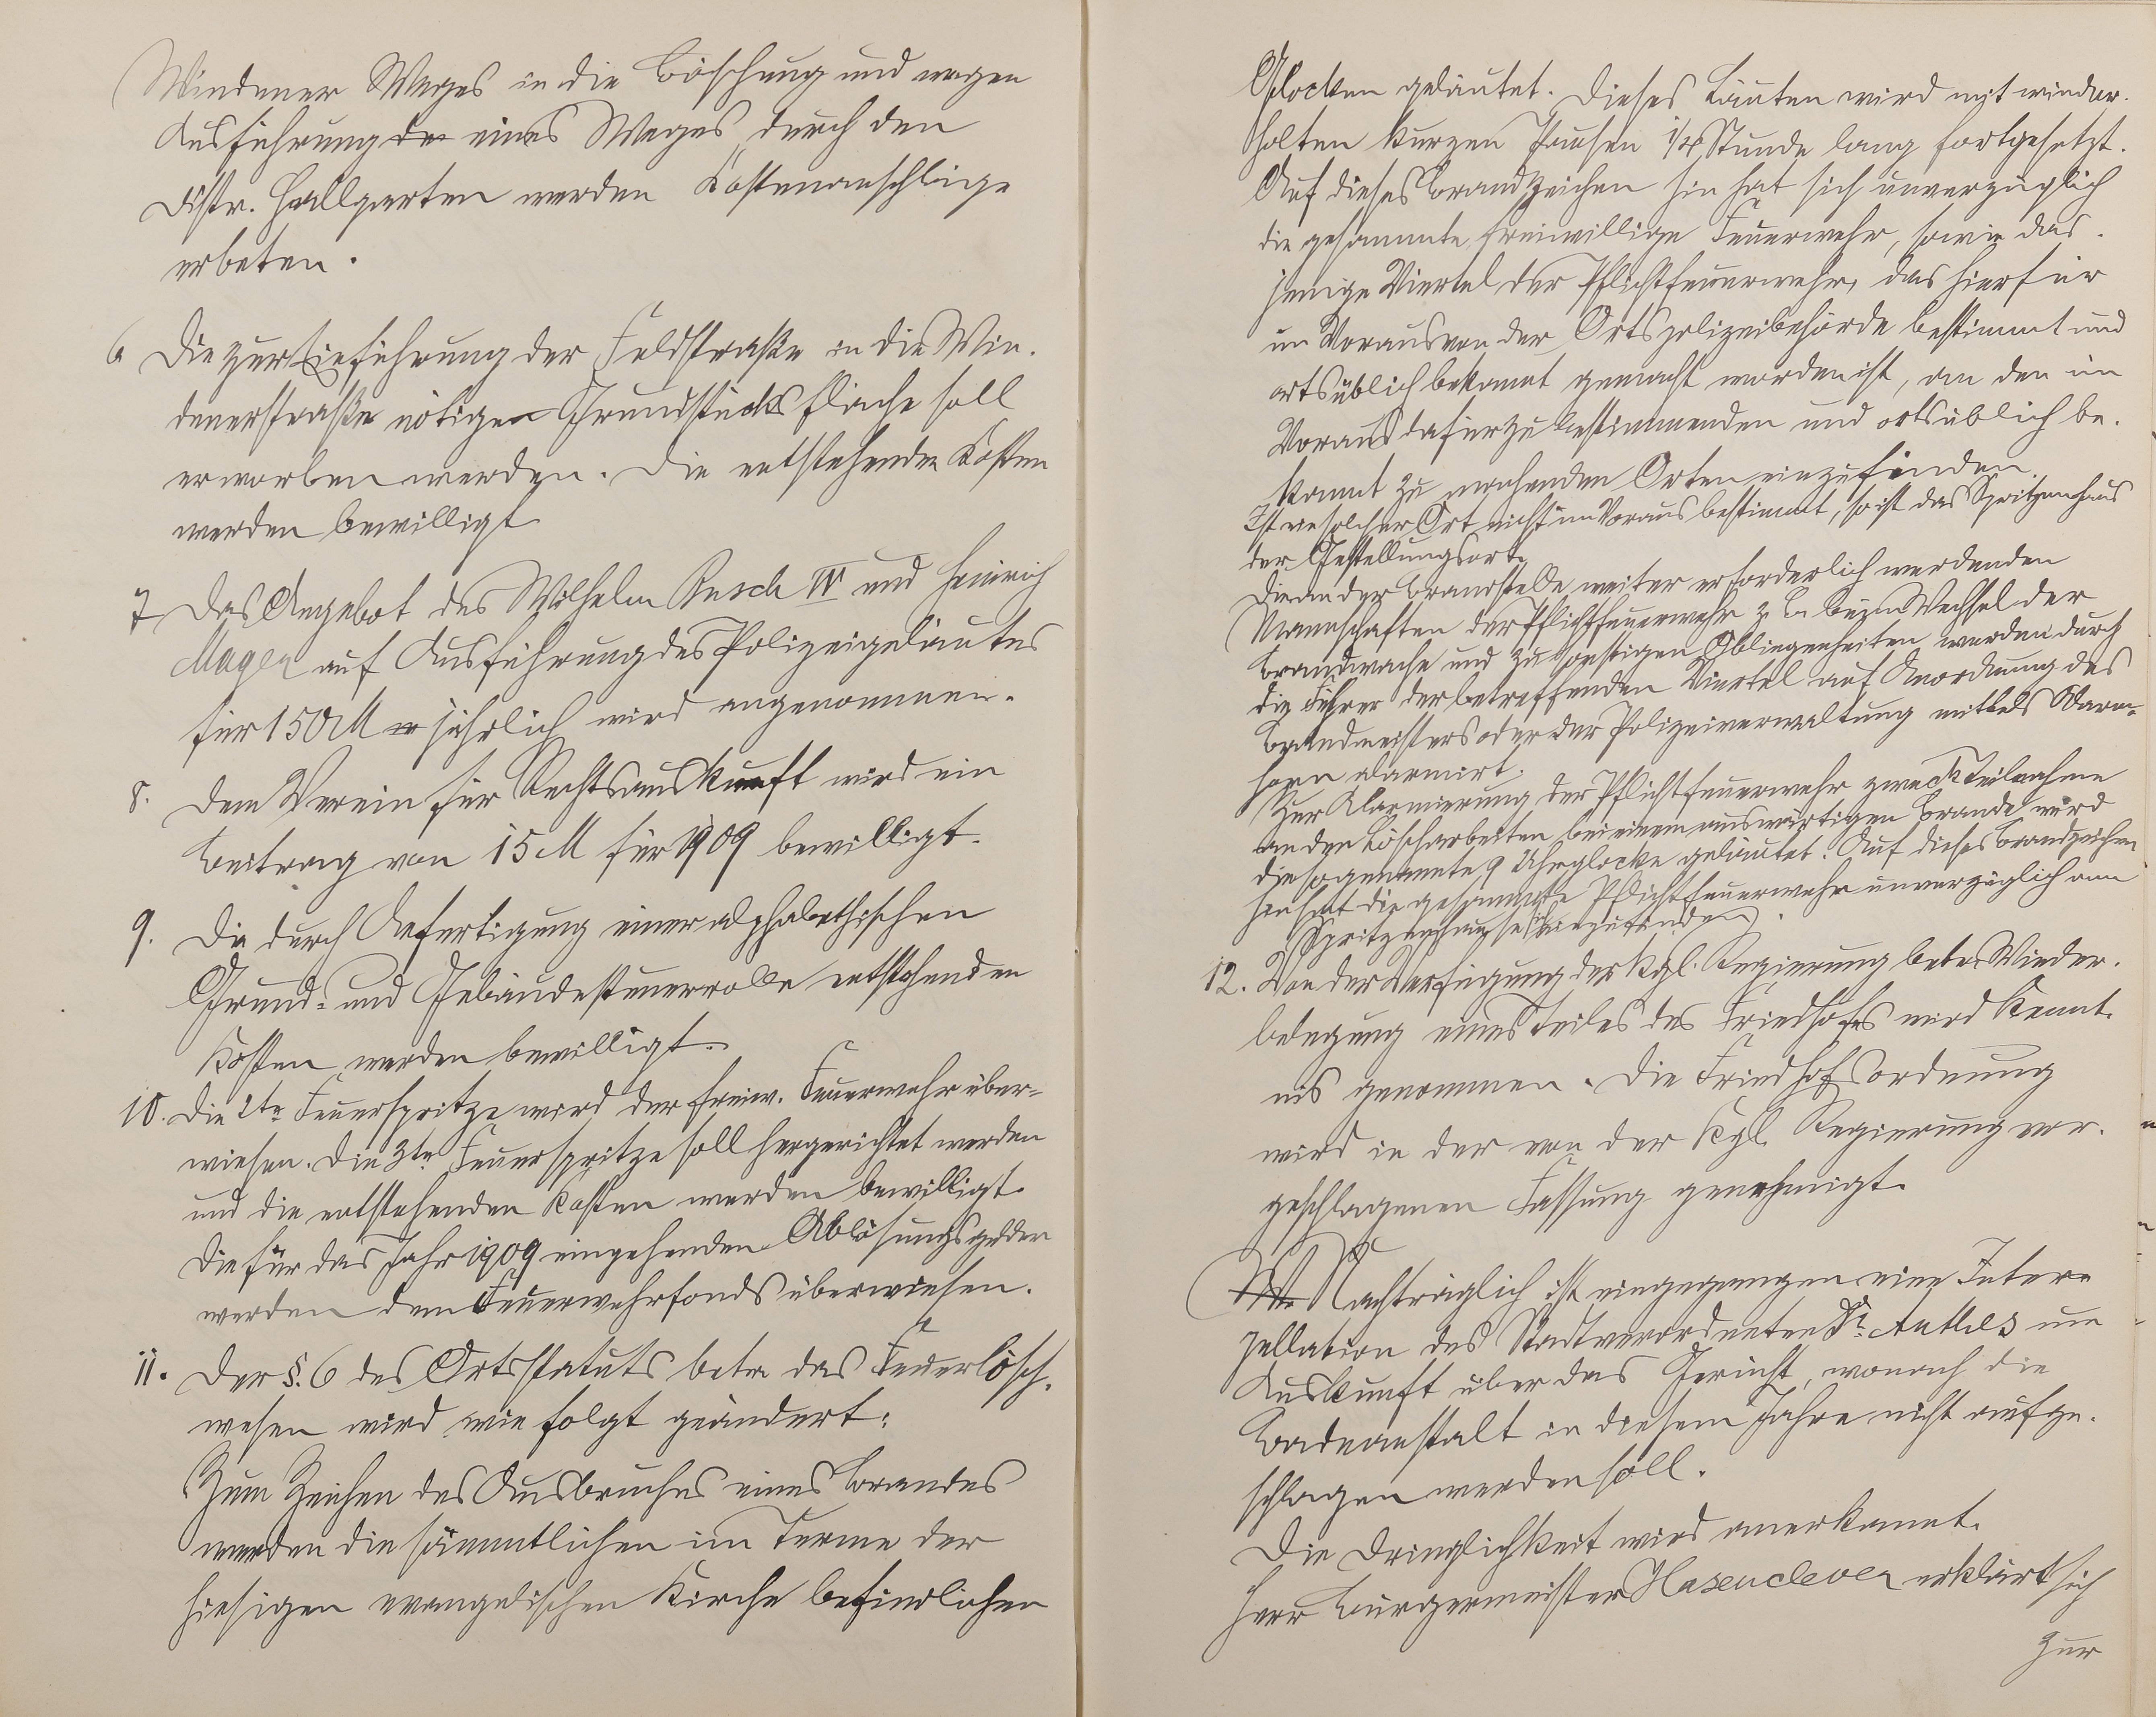 Windener Weges in die Böschung und wegen
Ausführung der eines Weges durch den
Distr. Hallgarten werden Kostenanschläge
erbeten.
6 Die zur Einführung der Feldstraße in die Win-
denerstraße nötigen Grundstücksfläche soll
erworben werden. Die entstehenden Kosten
werden bewilligt
7 Das Angebot des Wilhelm Busch IV und Heinrich
Mager auf Ausführung des Polizeigeläutes
für 150 M jährlich wird angenommen.
8. Dem Verein für Rechtsauskunft wird ein
Beitrag von 15 M für 1909 bewilligt.
9. Die durch Anfertigung einer alphabethischen
Grund- und Gebäudesteuerrolle entstehenden
Kosten werden bewilligt.
10. Die 2te Feuerspritze wird der freiw. Feuerwehr über-
wiesen. Die 3te Feuerspritze soll hergerichtet werden
und die entstehenden Kosten werden bewilligt.
Die für das Jahr 1909 eingehenden Ablösungsgelder
werden dem Feuerwehrfonds überwiesen.
11. Der §. 6 des Ortsstatuts betr. das Feuerlösch-
wesen wird wie folgt geändert:
Zum Zeichen des Ausbruches eines Brandes
werden die sämmtlichen im Turme der
hiesigen evangelischen Kirche befindlichen
Glocken geläutet. Dieses Läuten wird mit wieder-
holten kurzen Pausen 1/4 Stunde lang fortgesetzt.
Auf dieses Brandzeichen hin hat sich unverzüglich
die gesammte freiwillige Feuerwehr, sowie das-
jenige Viertel der Pflichtfeuerwehr, das hierfür
im Voraus von der Ortspolizeibehörde bestimmt und
ortsüblich bekannt gemacht worden ist, an den im
Voraus dafür zu bestimmenden und ortsüblich be-
kannt zu machenden Orten einzufinden.
Ist ein solcher Ort nicht im Voraus bestimmt, so ist das Spritzenhaus
der Gestellungsort.
Die an der Brandstelle weiter erforderlich werdenden
Mannschaften der Pflichtfeuerwehr z. B. beim Wechsel der
Brandwache und zu sonstigen Obliegenheiten werden durch
die Führer der betreffenden Viertel auf Anordnung des
Brandmeisters oder der Polizeiverwaltung mittels Warn-
horn alarmirt.
Zur Alarmierung der Pflichtfeuerwehr zweck Teilnahme
an den Löscharbeiten bei einem auswärtigen Brande wird
die sogenannte 9 Uhrglocke geläutet. Auf dieses Brandzeichen
hin hat die gesammte Pflichtfeuerwehr unverzüglich am
Spritzenhause sich einzufinden.
12. Von der Verfügung der Kgl. Regierung betr. Wieder-
belegung eines Teiles des Friedhofes wird Kennt-
nis genommen. Die Friedhofsordnung
wird in der von der Kgl. Regierung vor-
geschlagenen Fassung genehmigt.
Nachträglich ist eingegangen eine Inter-
pellation des Stadtverordneten Dr. Anthes um
Auskunft über das Gerücht, wonach die
Badeanstalt in diesem Jahre nicht aufge-
schlagen werden soll.
Die Dringlichkeit wird anerkannt.
Herr Bürgermeister Hasenclever erklärt sich
zur